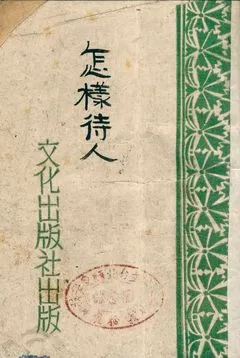 怎樣待人
文化出版社出版